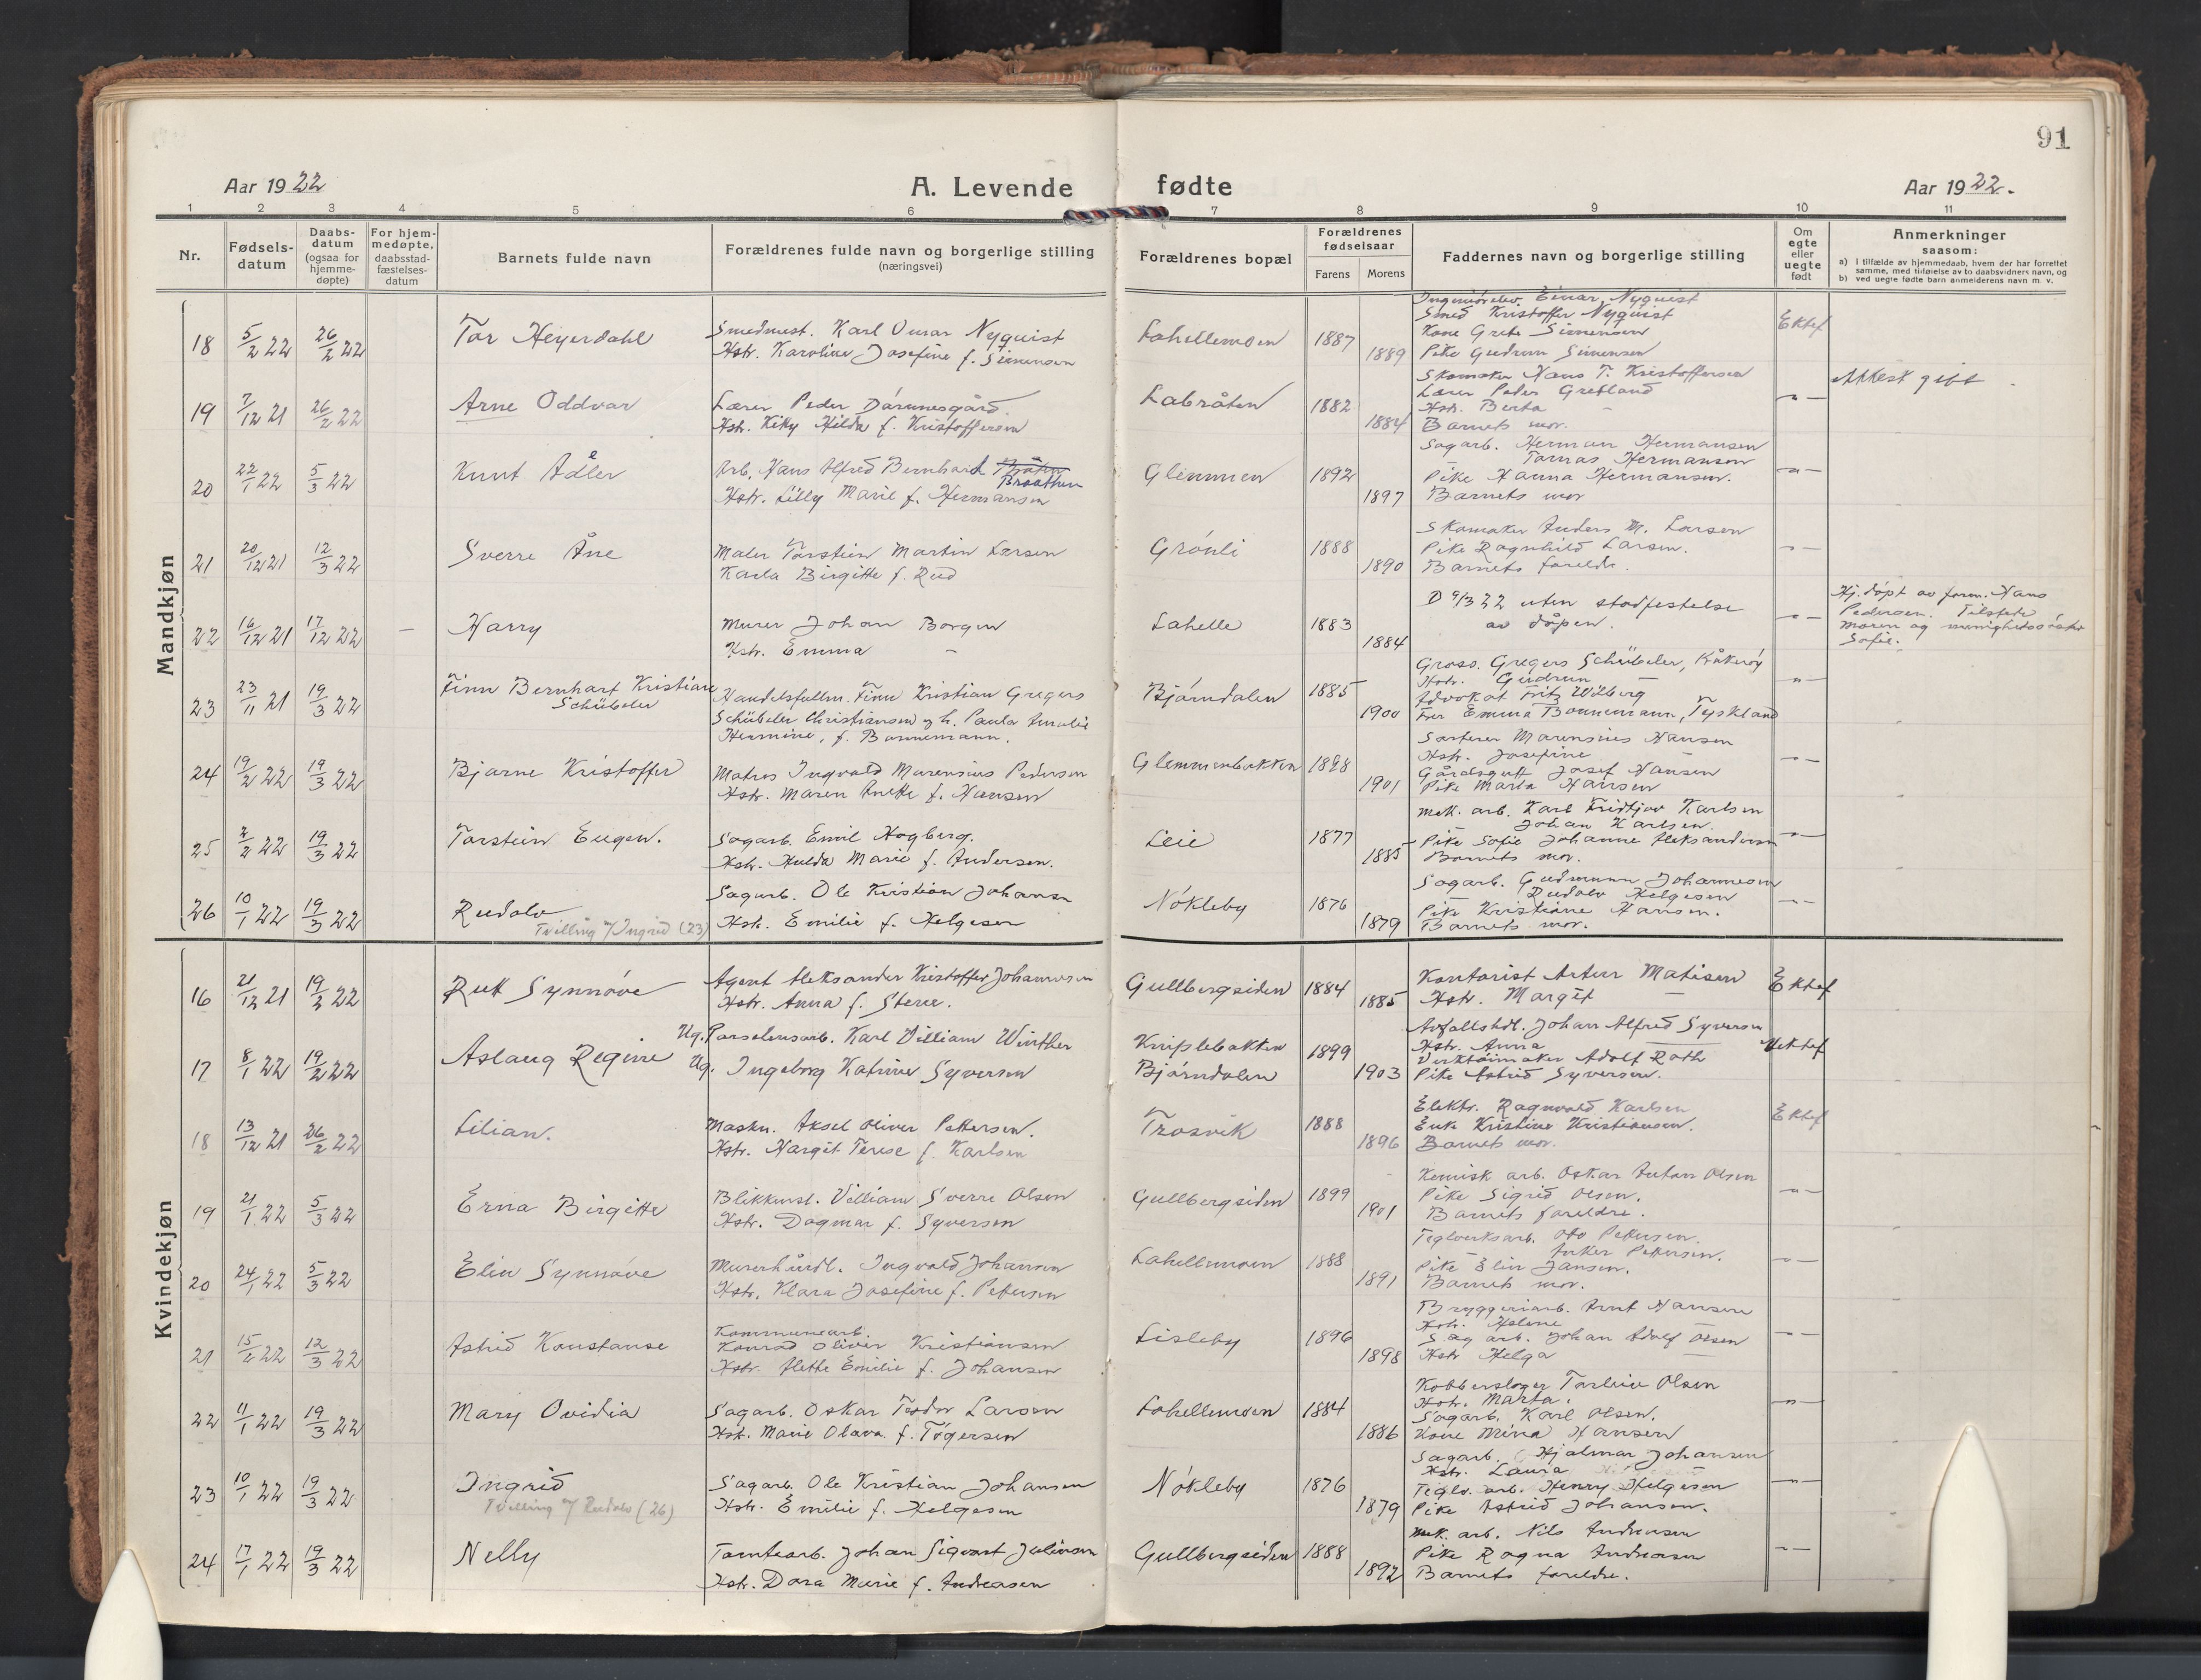 91
Aar 1922
A. Levende fødte
Aar 1922.
1 2 3 4 5 6 7 8 9 10 11
Nr.
Fødsels-
datum
Daabs-
datum
(ogsaa for
hjemme-
døpte)
For hjem-
medøpte,
daabsstad-
fæstelses-
datum
Barnets fulde navn
Forældrenes fulde navn og borgerlige stilling
(næringsvei)
Forældrenes bopæl
Forældrenes
fødselsaar
Farens Morens
Faddernes navn og borgerlige stilling
Om
egte
eller
uegte
født
Anmerkninger
saasom:
a) i tilfælde av hjemmedaab, hvem der har forrettet
samme, med tilføielse av to daabsvidners navn, og
b) ved uegte fødte barn anmelderens navn m. v.
Mandkjøn
18 5/2 22 26/2 22 Tor Heyerdahl
Smedmest. Karl Omar Nyquist
Hstr. Karoline Josefine f. Simensen
Lahellemoen 1887 1889
Ingeniørelev. Einar Nyquist
Smed Kristoffer Nyquist
Kone Grete Simensen
Pike Gudrun Simensen
Ektef
19 7/12 21 26/2 22 Arne Oddvar
Lærer Peder Dårunesgård
Hstr. Kiky Hilda f. Kristoffersen
Labråten 1882 1884
Skomaker Hans T. Kristoffersen
Lærer Peder Grefland
Hstr. Berta -
Barnets mor.
-"-
Attest gitt
20 22/1 22 5/3 22 Knut Adler
Arb. Hans Alfred Bernhard Bråten
Braathen
Hstr. Lilly Marie f. Hermansen
Glemmen 1892 1897
Sagarb. Herman Hermansen
Tomas Hermansen
Pike Hanna Hermansen.
Barnets mor
-"-
21 20/12 21 12/3 22 Sverre Åne
Maler Torstein Martin Larsen
Karla Birgitte f. Rud
Grønli 1888 1890
Skomaker Anders M. Larsen
Pike Ragnhild Larsen.
Barnets foreldre.
-"-
22 16/12 21 17/12 22 - Harry
Murer Johan Borgen
Hstr. Emma -
Lahelle 1883 1884
D 9/3 22 uten stadfestelse
av dåpen.
-"-
Hj.døpt av form. Hans
Pedersen. Tilstede
moren og menighetssøster
Sofie.
23 23/11 21 19/3 22 Finn Bernhart Kristian
Schübeler
Handelsfullm. Finn Kristian Gregers
Schübeler Christiansen og h. Paula Amalie
Hermine, f. Bonnemann.
Bjørndalen 1885 1900
Gross. Gregers Schübeler, Kråkerøy
Hstr. Gudrun -
Advokat Fritz Wilberg
Fru Emma Bonnemann, Tyskland
-"-
24 19/2 22 19/3 22 Bjarne Kristoffer
Matros Ingvald Marensius Pedersen
Hstr. Maren Anette f. Hansen
Glemmenbakken 1898 1901
Sorterer Marensius Hansen
Hstr. Josefine -
Gårdsgutt Josef Hansen
Pike Marta Hansen
-"-
25 2/2 22 19/3 22 Torstein Eugen.
Sagarb. Emil Hogberg.
Hstr. Hulda Marie f. Andersen.
Leie 1877 1885
Mek. arb. Karl Fridtjov Karlsen
Johan Karlsen.
Pike Sofie Johanne Aleksandersen
Barnets mor.
-"-
26 10/1 22 19/3 22 Rudolv
Tvilling m/Ingrid (23)
Sagarb. Ole Kristian Johansen
Hstr. Emilie f. Helgesen
Nøkleby 1876 1879
Sagarb. Gudmunn Johannesen
Rudolv Helgesen
Pike Kristiane Hansen.
Barnets mor.
-"-
Kvindekjøn
16 21/12 21 19/2 22 Rut Synnøve
Agent Aleksander Kristoffer Johannesen
Hstr. Anna f. Stene.
Gullbergsiden 1884 1885
Kontorist Artur Matisen
Hstr. Margit -
Ektef
17 8/1 22 19/2 22 Aslaug Regine
Ug. Porselensarb. Karl Villiam Winther
Ug. Ingeborg Katrine Syversen
Kniplebakken
Bjørndalen 1899 1903
Avfallshdl. Johan Alfred Syversen
Hstr. Anna
Verktøimaker Adolf Roth
Pike Astrid Syversen.
Uektef
18 13/12 21 26/2 22 Lilian.
Maskn. Aksel Oliver Pettersen.
Hstr. Margit Terese f. Karlsen
Trosvik 1888 1896
Elektr. Ragnvald Karlsen
Enke Kristine Kristiansen.
Barnets mor.
Ektef
19 21/1 22 5/3 22 Erna Birgitte
Blikkensl. Villiam Sverre Olsen
Hstr. Dagmar f. Syversen
Gullbergsiden 1899 1901
Kemisk arb. Oskar Anton Olsen
Pike Sigrid Olsen.
Barnets foreldre.
-"-
20 24/1 22 5/3 22 Elin Synnøve
Murerhåndl. Ingvald Johansen
Hstr. Klara Josefine f. Pettersen
Lahellemoen 1888 1891
Teglverksarb. Oto Pettersen.
Anker Pettersen.
Pike Elin Jansen.
Barnets mor.
-"-
21 15/2 22 12/3 22 Astrid Konstanse
Kommunearb.
Konrad Oliver Kristiansen
Hstr. Alette Emilie f. Johansen
Lisleby 1896 1898
Bryggeriarb. Arnt Hansen
Hstr. Helene
Sag arb. Johan Adolf Olsen
Hstr Helga -
-"-
22 11/1 22 19/3 22 Mary Ovidia
Sagarb. Oskar Teodor Larsen
Hstr. Marie Olava f. Tøgersen
Lahellemoen 1884 1886
Kobberslager Torleiv Olsen
Hstr. Marta.
Sagarb. Karl Olsen.
Kone Mina Hansen
-"-
23 10/1 22 19/3 22 Ingrid
Tvilling m/ Rudolv (26)
Sagarb. Ole Kristian Johansen
Hstr. Emilie f. Helgesen
Nøkleby 1876 1879
Sagarb. Hjalmar Johansen
Hstr. Laura
Teglv. arb. Henry Helgesen
Pike Astrid Johansen.
-"-
24 17/1 22 19/3 22 Nelly
Tomtearb. Johan Sigvart Julinsen
Hstr. Dora Marie f. Andreasen
Gullbergsiden 1888 1892
Mek. arb. Nils Andreasen
Pike Ragna Andreasen
Barnets foreldre.
-"-